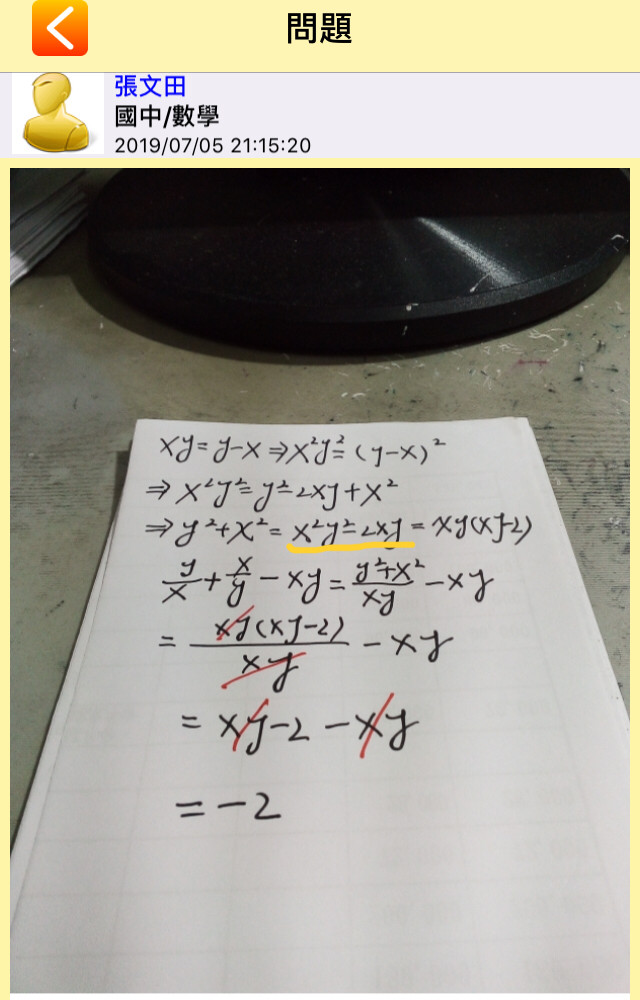 問題
張文田
國中/數學
2019/07/05 21:15:20
xy=y-x⇒x²y²=(y-x)²
⇒x²y²=y²-2xy+x²
⇒y²+x²=x²y²-2xy=xy(xy-2)
y/x+x/y-xy=(y²+x²)/xy-xy
=xy(xy-2)/xy-xy
=xy-2-xy
=-2